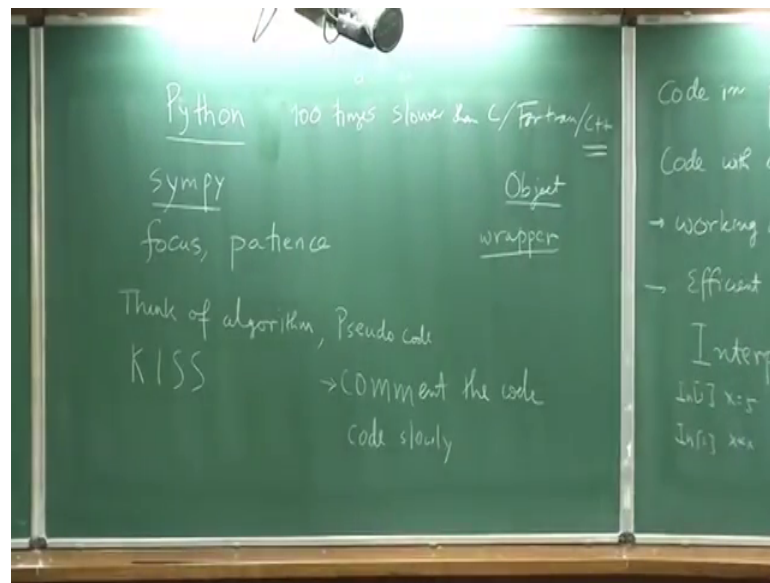 Python 100 times slower than C/Fortran/C++
sympy Object
focus, patience wrapper
Think of algorithm, Pseudo code
KISS
→ Comment the code
Code slowly
Code in
Code with
→ working
→ Efficient
Interp
In[ ] x=5
In[ ]